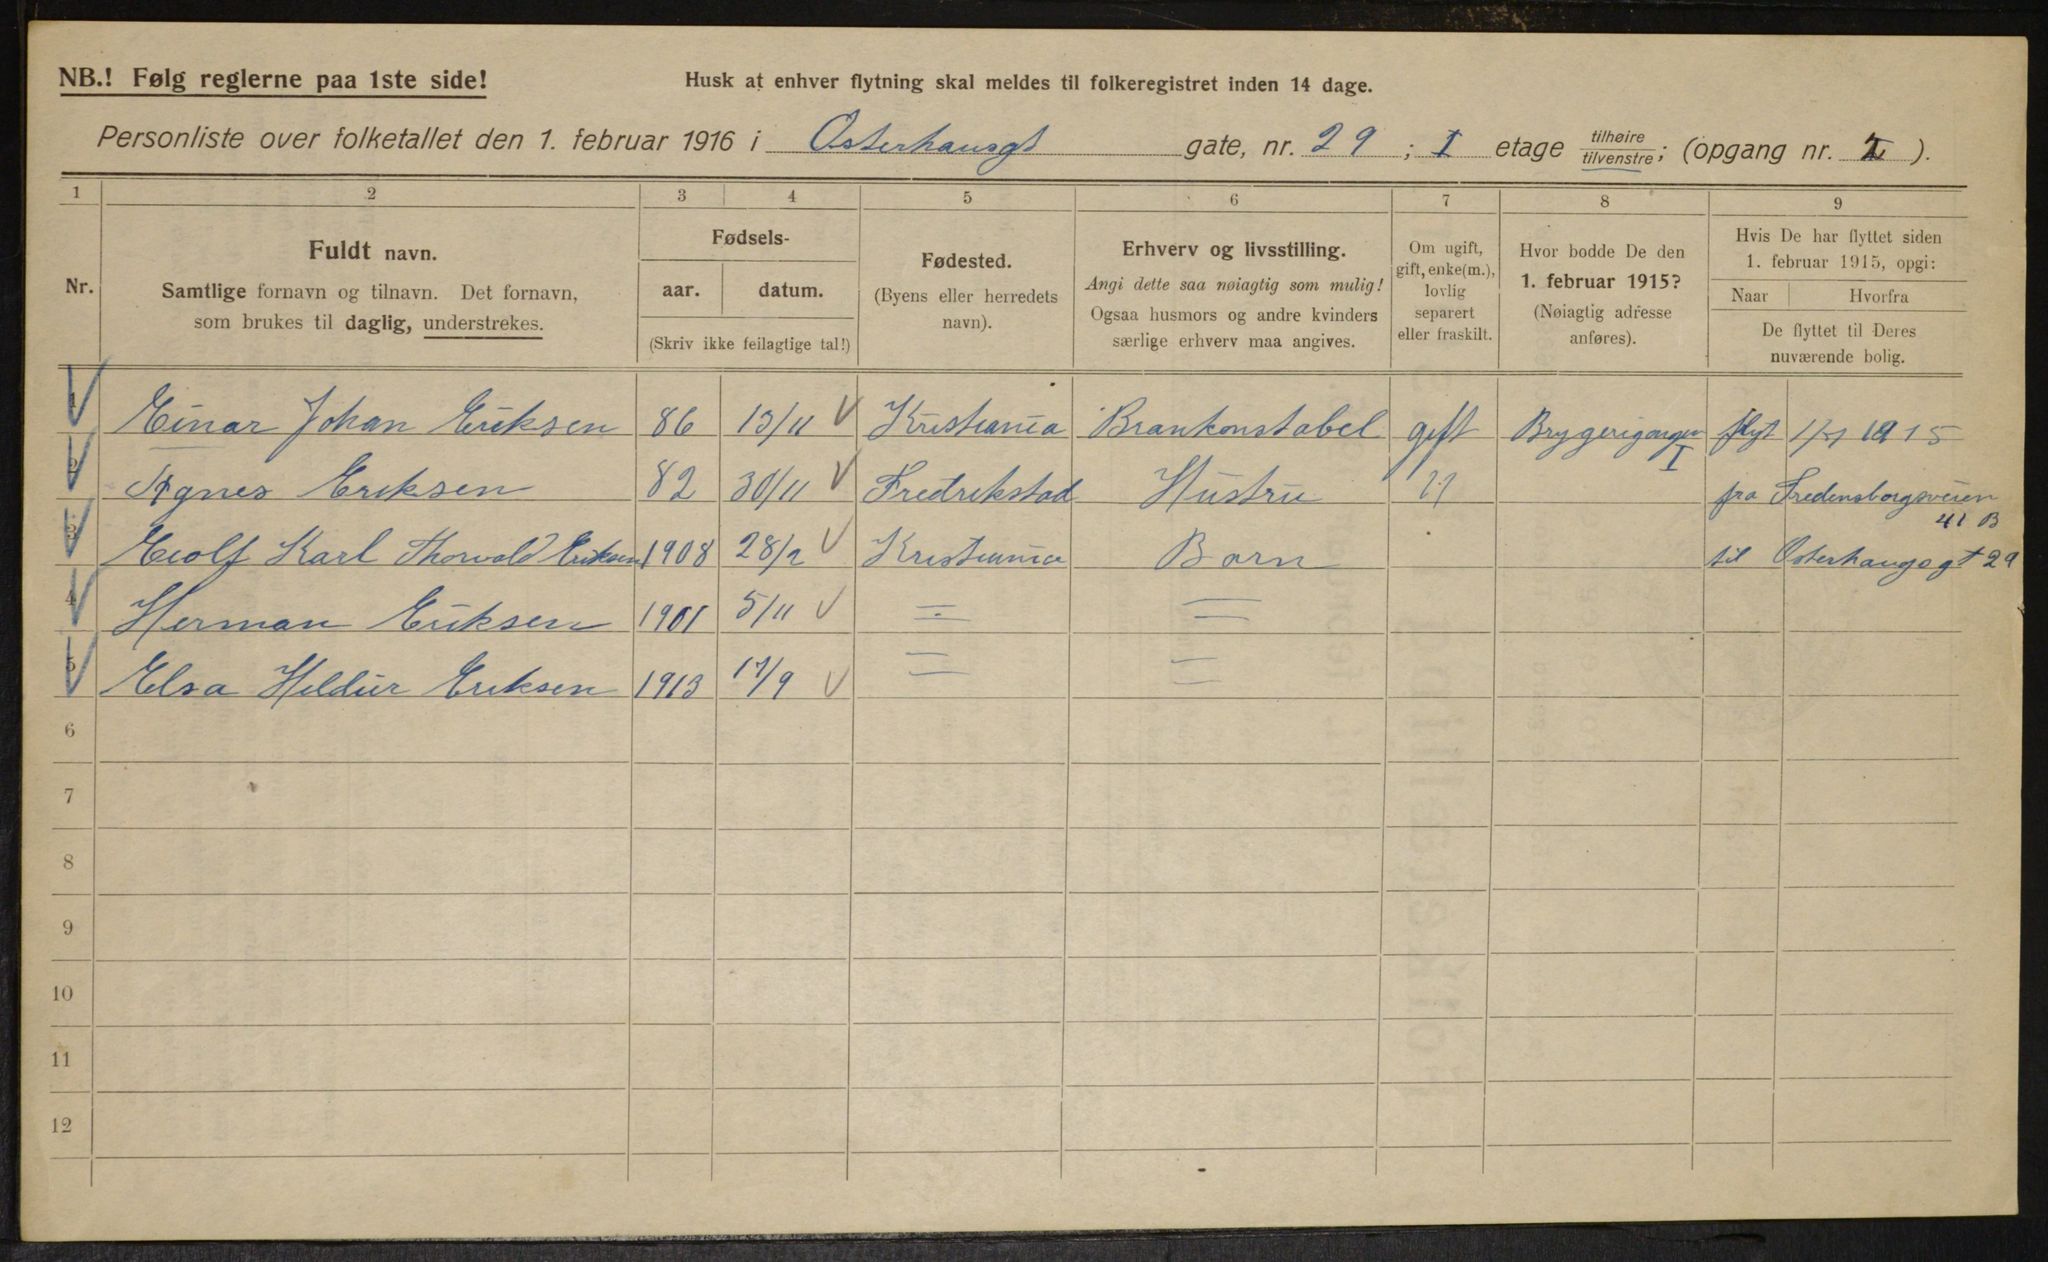 NB.! Følg reglerne paa 1ste side!
Husk at enhver flytning skal meldes til folkeregistret inden 14 dage.
Personliste over folketallet den 1. februar 1916 i Osterhausgt gate, nr. 29 ; I etage tilhøire/tilvenstre; (opgang nr. ).
1 2 3 4 5 6 7 8 9
Nr.
Fuldt navn.
Samtlige fornavn og tilnavn. Det fornavn,
som brukes til daglig, understrekes.
Fødsels-
aar. datum.
(Skriv ikke feilagtige tal!)
Fødested.
(Byens eller herredets
navn).
Erhverv og livsstilling.
Angi dette saa nøiagtig som mulig!
Ogsaa husmors og andre kvinders
særlige erhverv maa angives.
Om ugift,
gift, enke(m.),
lovlig
separert
eller fraskilt.
Hvor bodde De den
1. februar 1915?
(Nøiagtig adresse
anføres).
Hvis De har flyttet siden
1. februar 1915, opgi:
Naar Hvorfra
De flyttet til Deres
nuværende bolig.
1 Einar Johan Eriksen 86 13/11 Kristiania Brankonstabel gift Bryggerigangen I flyt 1915
2 Agnes Eriksen 82 30/11 Fredrikstad Hustru " fra Fredensborgsveien
41 B
3 Eiolf Karl Thorvald Eriksen 1908 28/2 Kristiania Barn til Osterhausgt 29
4 Herman Eriksen 1901 5/11 = =
5 Elsa Heldur Eriksen 1913 17/9 = =
6
7
8
9
10
11
12